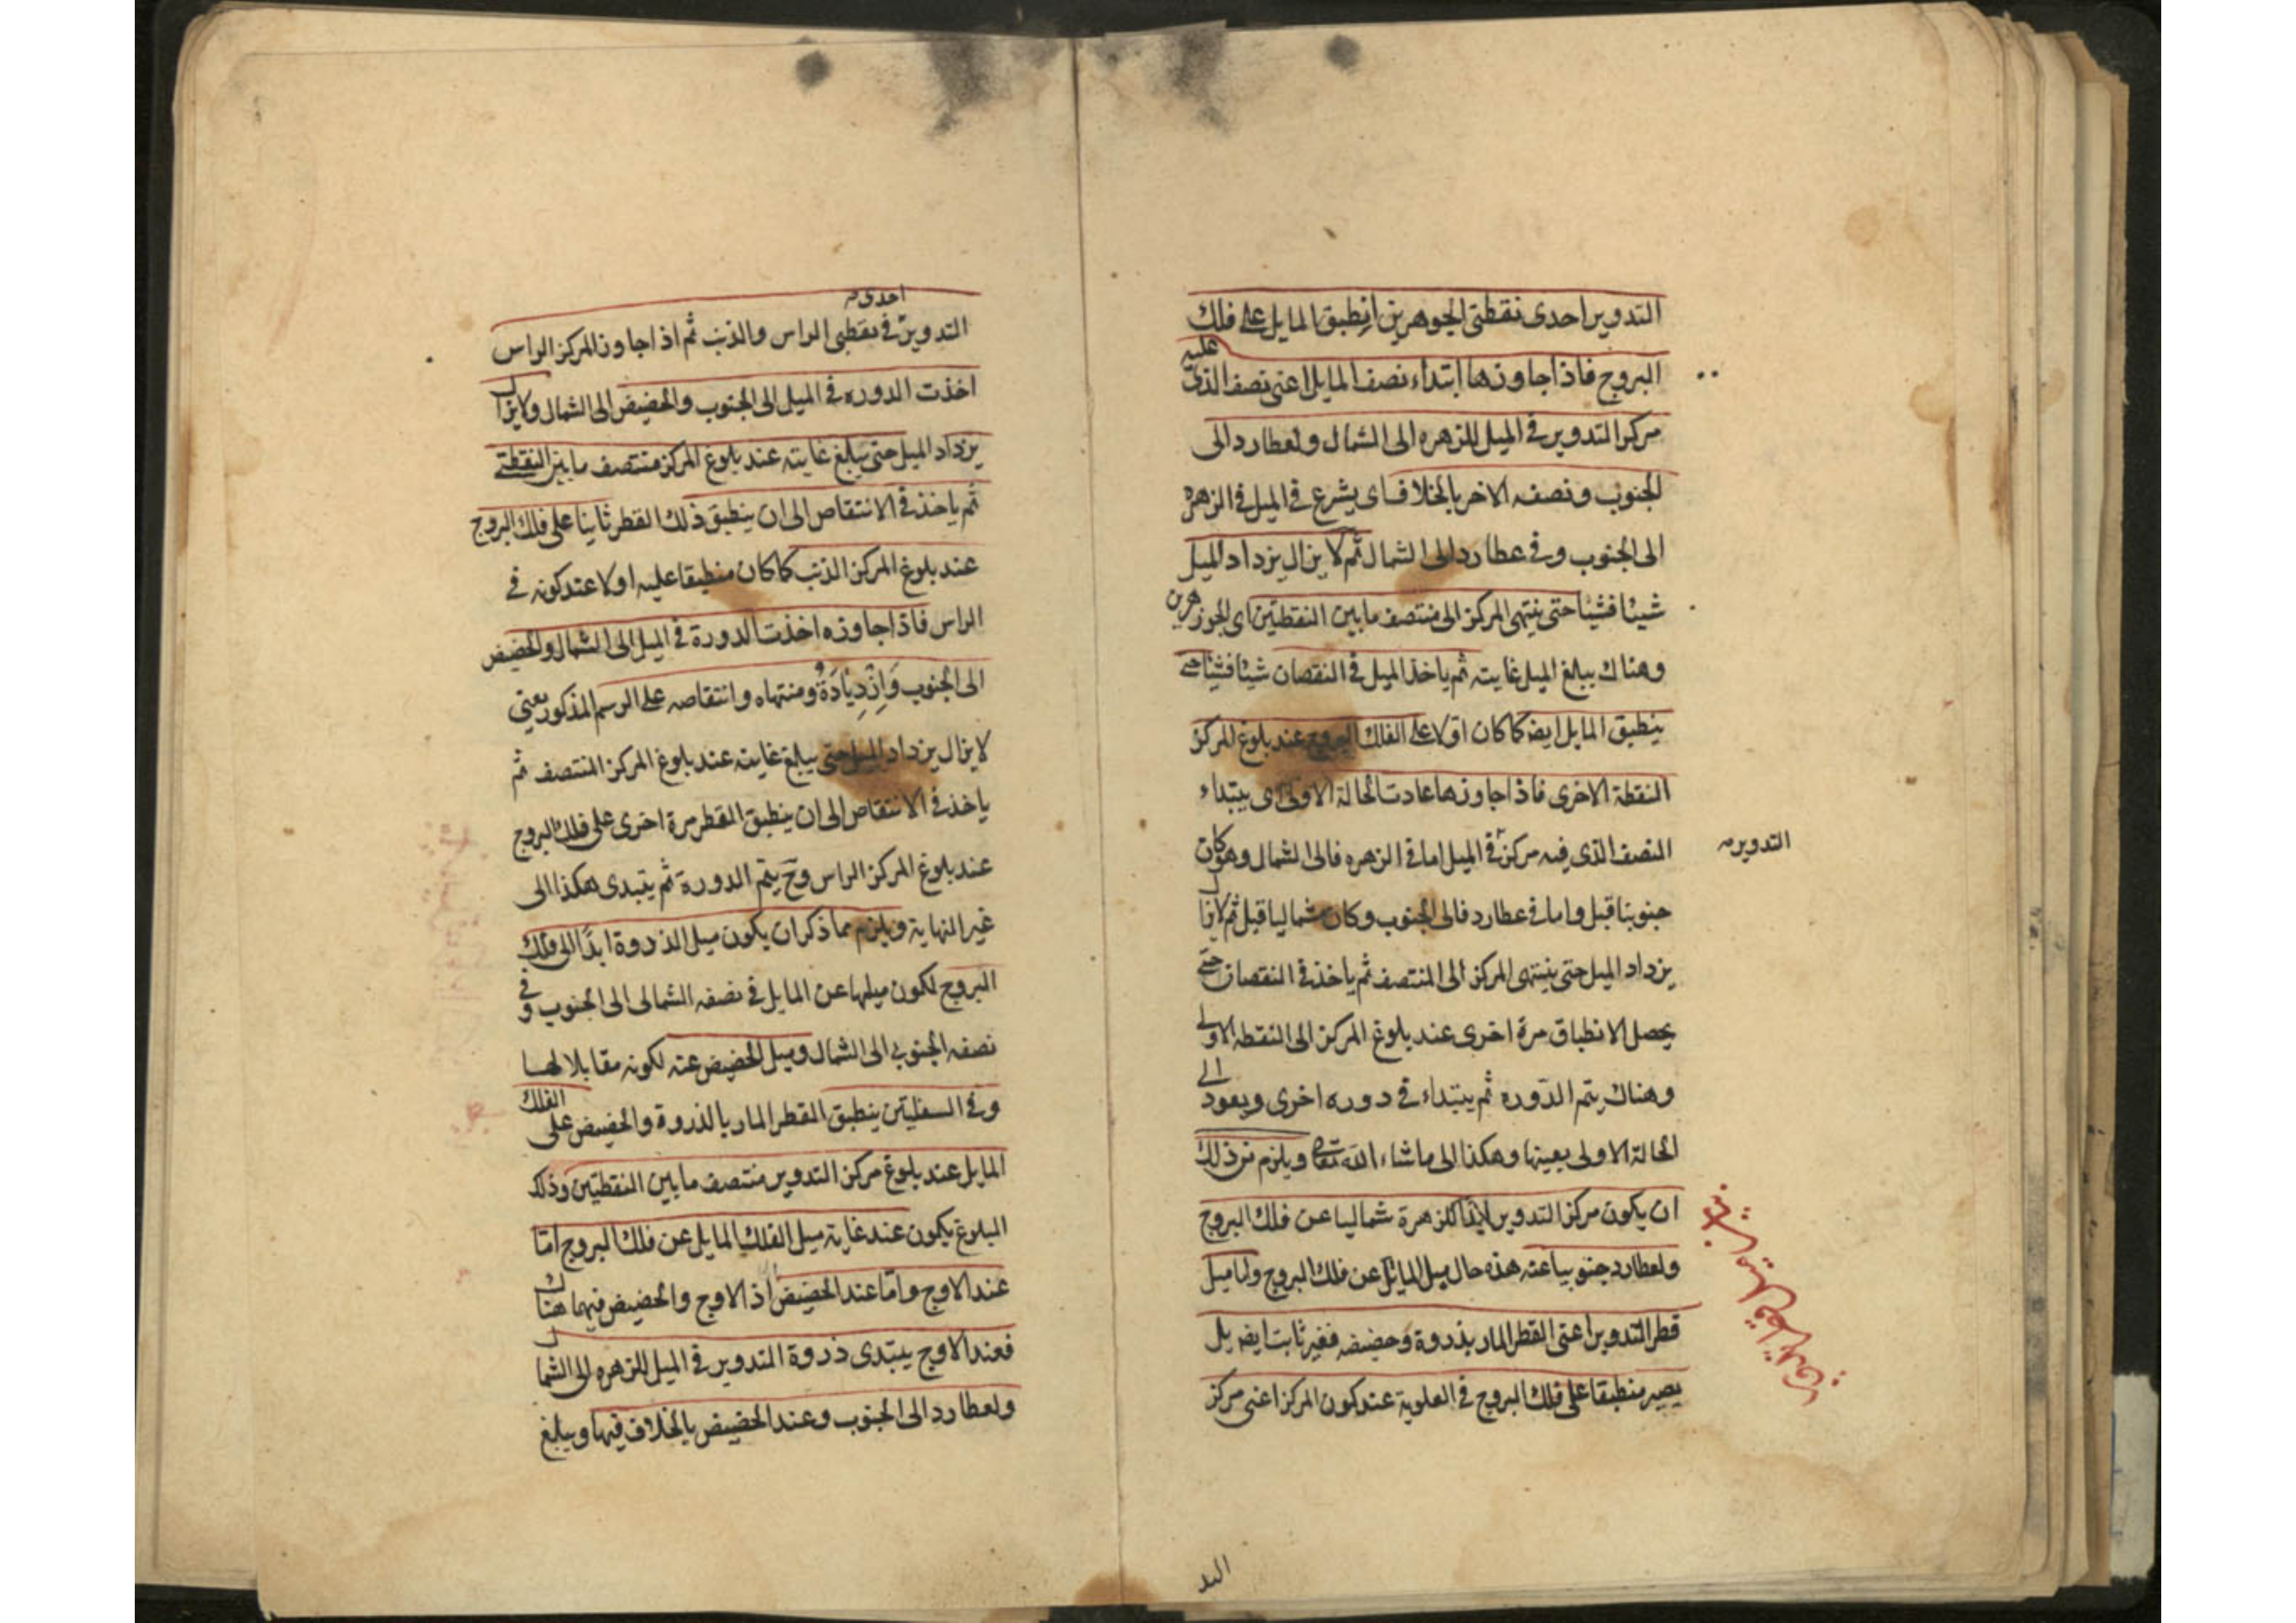 التدوير احدى نقطتى الجوهرين انطبق المايل على فلك
البروج فاذا جاوزها ابتداء نصف المايل اعنى نصف الذى عليه
مركز التدوير فى الميل للزهره الى الشمال ولعطارد الى
الجنوب ونصفه الاخر بالخلاف اى يشرع فى الميل فى الزهره
الى الجنوب وفى عطارد الى الشمال ثم لا يزال يزداد الميل
شيئا فشيئا حتى ينتهى المركز الى منتصف ما بين النقطتين اى الجوزهرين
وهناك يبلغ الميل غايته ثم ياخذ الميل فى النقصان شيئا فشيئا حتى
ينطبق المايل ايض كما كان اولا على الفلك البروج عند بلوغ المركز
النقطة الاخرى فاذا جاوزها عادت الحالة الاولى اى يبتداء
النصف الذى فيه مركز فى الميل اما فى الزهره فالى الشمال وهو كان
التدوير
جنوبيا قبل واما فى عطارد فالى الجنوب وكان شماليا قبل ثم لا يزال
يزداد الميل حتى ينتهى المركز الى المنتصف ثم ياخذ فى النقصان حتى
يحصل الانطباق مرة اخرى عند بلوغ المركز الى النقطه الاولى
وهناك يتم الدوره ثم يبتداء فى دوره اخرى ويعود الى
الحالة الاولى بعينها وهكذا الى ما شاء الله تعالى ويلزم من ذلك
ان يكون مركز التدوير للزهرة شماليا عن فلك البروج
ولعطارد جنوبيا عنه هذه حال ميل المايل عن فلك البروج واما ميل
قطر التدوير اعنى القطر المار بذروة وحضيضه فغير ثابت ايض بل
يصير منطبقا على فلك البروج فى العلوية عند كون المركز اعنى مركز
احدى
التدوير فى نقطتى الراس والذنب ثم اذا جاوز المركز الراس
اخذت الدوره فى الميل الى الجنوب والحضيض الى الشمال ولا يزال
يزداد الميل حتى يبلغ غايته عند بلوغ المركز منتصف ما بين النقطتى
ثم ياخذ فى الانتقاص الى ان ينطبق ذلك القطر ثانيا على فلك البروج
عند بلوغ المركز الذنب كما كان منطبقا عليه اولا عند كونه فى
الراس فاذا جاوزه اخذت الدورة فى الميل الى الشمال والحضيض
الى الجنوب وَاِزْدِيَادَهُ ومنتهاه وانتقاصه على الرسم المذكور يعنى
لا يزال يزداد الميل حتى يبلغ غايته عند بلوغ المركز المنتصف ثم
ياخذ فى الانتقاص الى ان ينطبق القطر مرة اخرى على فلك البروج
عند بلوغ المركز الراس وح يتم الدورة ثم يبتدى هكذا الى
غير النهاية ويلزم مما ذكر ان يكون ميل الذروة ابدًا الى فلك
البروج لكون ميلها عن المايل فى نصفه الشمالى الى الجنوب وفى
نصفه الجنوبى الى الشمال وميل الحضيض عنه لكونه مقابلا لها
وفى السفليتين ينطبق القطر المار بالذروة والحضيض على الفلك
المايل عند بلوغ مركز التدوير منتصف ما بين النقطتين وذلك
البلوغ يكون عند غاية ميل الفلك المايل عن فلك البروج امّا
عند الاوج وامّا عند الحضيض اذ الاوج والحضيض فيهما هناك
فعند الاوج يبتدى ذروة التدوير فى الميل للزهره الى الشمال
ولعطارد الى الجنوب وعند الحضيض بالخلاف فيهما ويبلغ